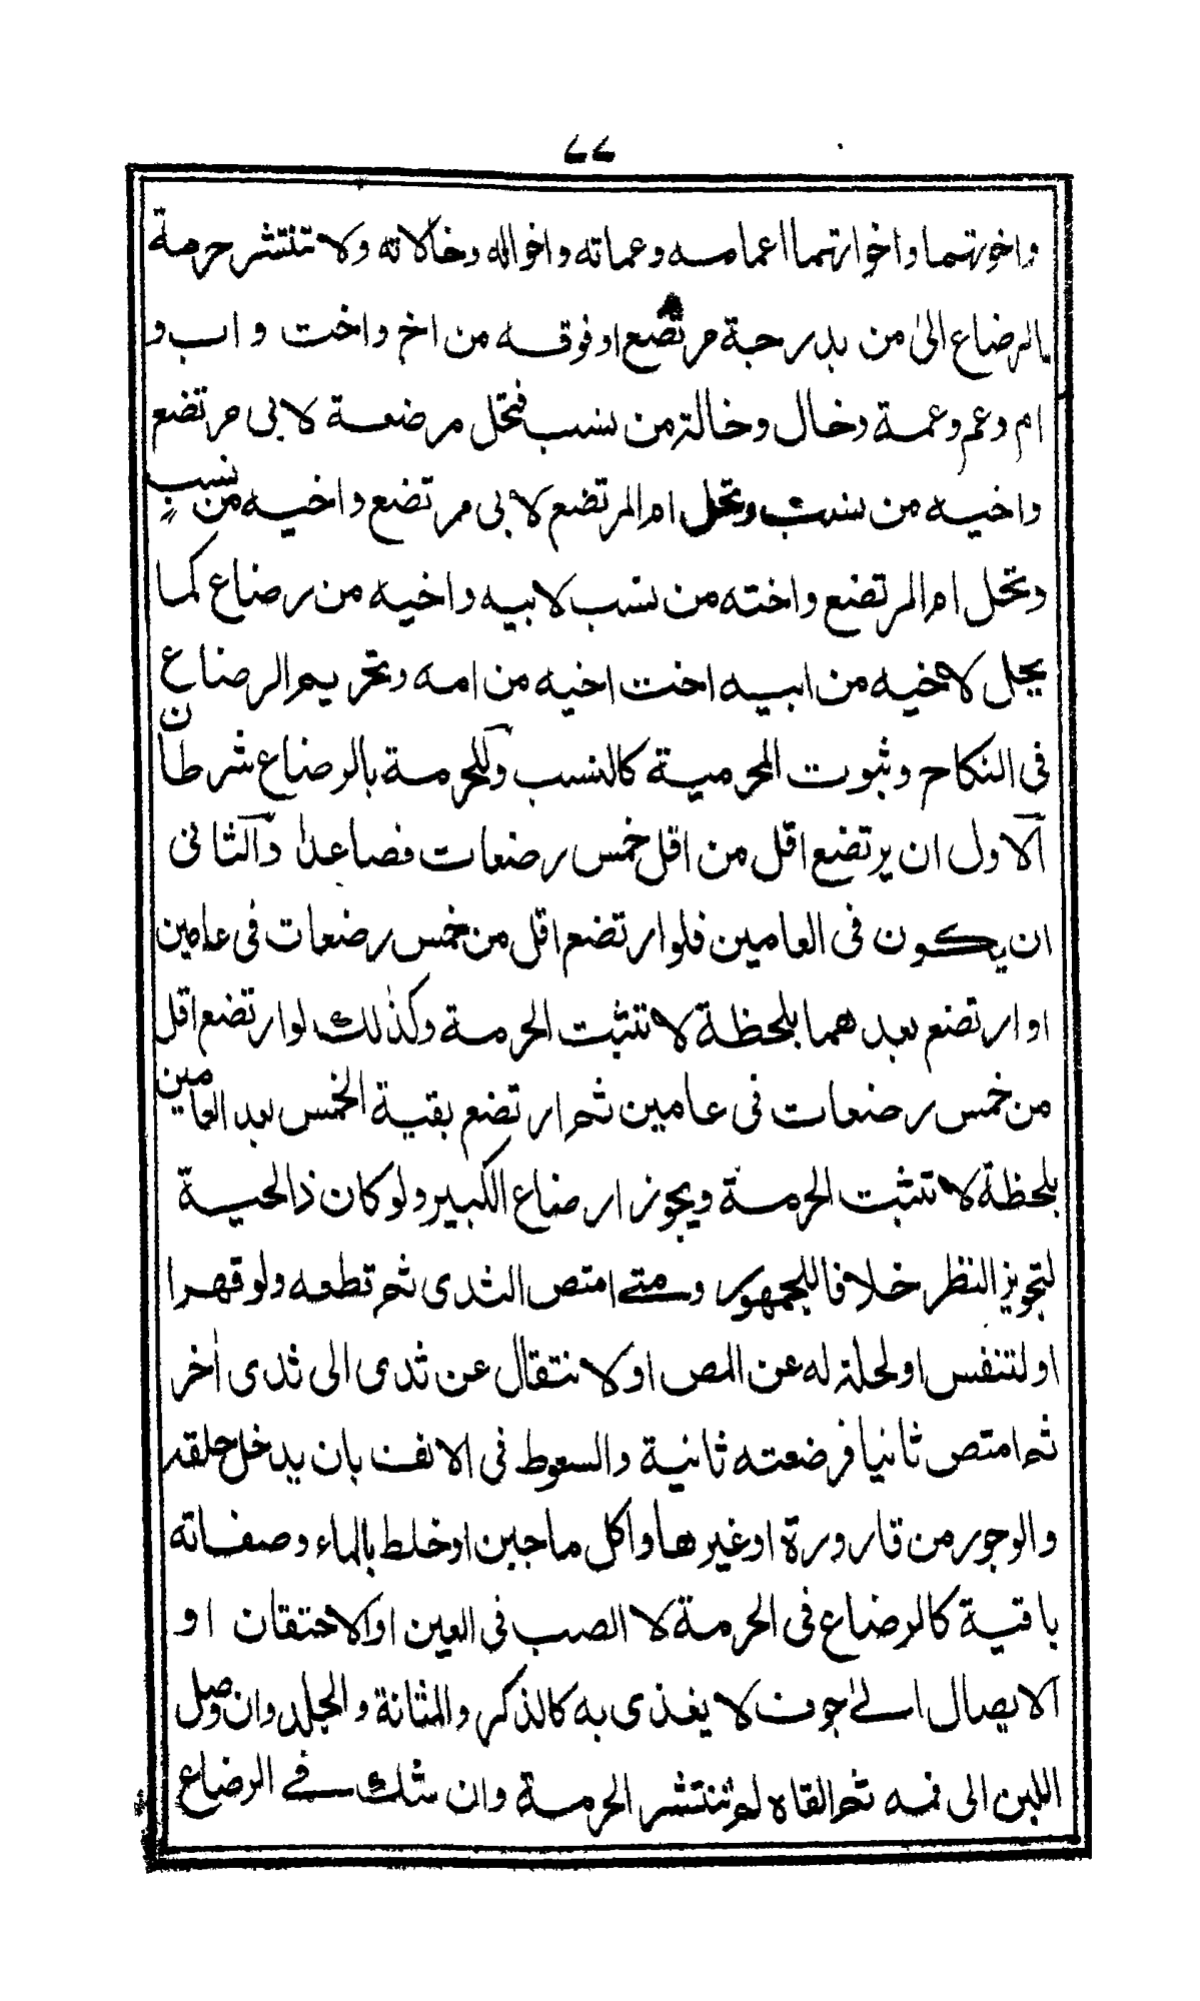 ٧٧
واخوتهما واخواتهما اعمامه وعماته واخواله وخالاته ولا تنتشر حرمة
بالرضاع الى من بدرجة مرتضع او فوقه من اخ واخت و اب و
ام وعم وعمة وخال وخالة من نسب فتحل مرضعة لابى مرتضع
واخيه من نسب وتحل ام المرتضع لابى مرتضع واخيه من نسب
وتحل ام المرتضع واخته من نسب لابيه واخيه من رضاع كما
يحل لاخيه من ابيه اخت اخيه من امه وتحريم الرضاع
فى النكاح وثبوت المحرمية كالنسب وللحرمة بالرضاع شرطان
الاول ان يرتضع اقل من اقل خمس رضعات فصاعدا والثانى
ان يكون فى العامين فلو ارتضع اقل من خمس رضعات فى عامين
او ارتضع بعدهما بلحظة لا تثبت الحرمة وكذلك لو ارتضع اقل
من خمس رضعات فى عامين ثم ارتضع بقية الخمس بعد العامين
بلحظة لا تثبت الحرمة ويجوز ارضاع الكبير ولو كان ذا لحية
لتجويز النظر خلافا للجمهور ومتے امتص الثدى ثم قطعه ولو قهرا
او لتنفس او لحلة له عن المص او لا نتقال عن ثدى الى ثدى اٰخر
ثم امتص ثانيا فرضعته ثانية والسعوط فى الانف بان يدخل حلقه
والوجور من قارورة او غيرها واكل ما جبن او خلط بالماء وصفاته
باقية كالرضاع فى الحرمة لا الصب فى العين او الاحتقان او
الايصال الے جوف لا يغذى به كالذكر والمثانة والجلد وان وصل
اللبن الى فمه ثم القاه لم تنتشر الحرمة وان شك فے الرضاع